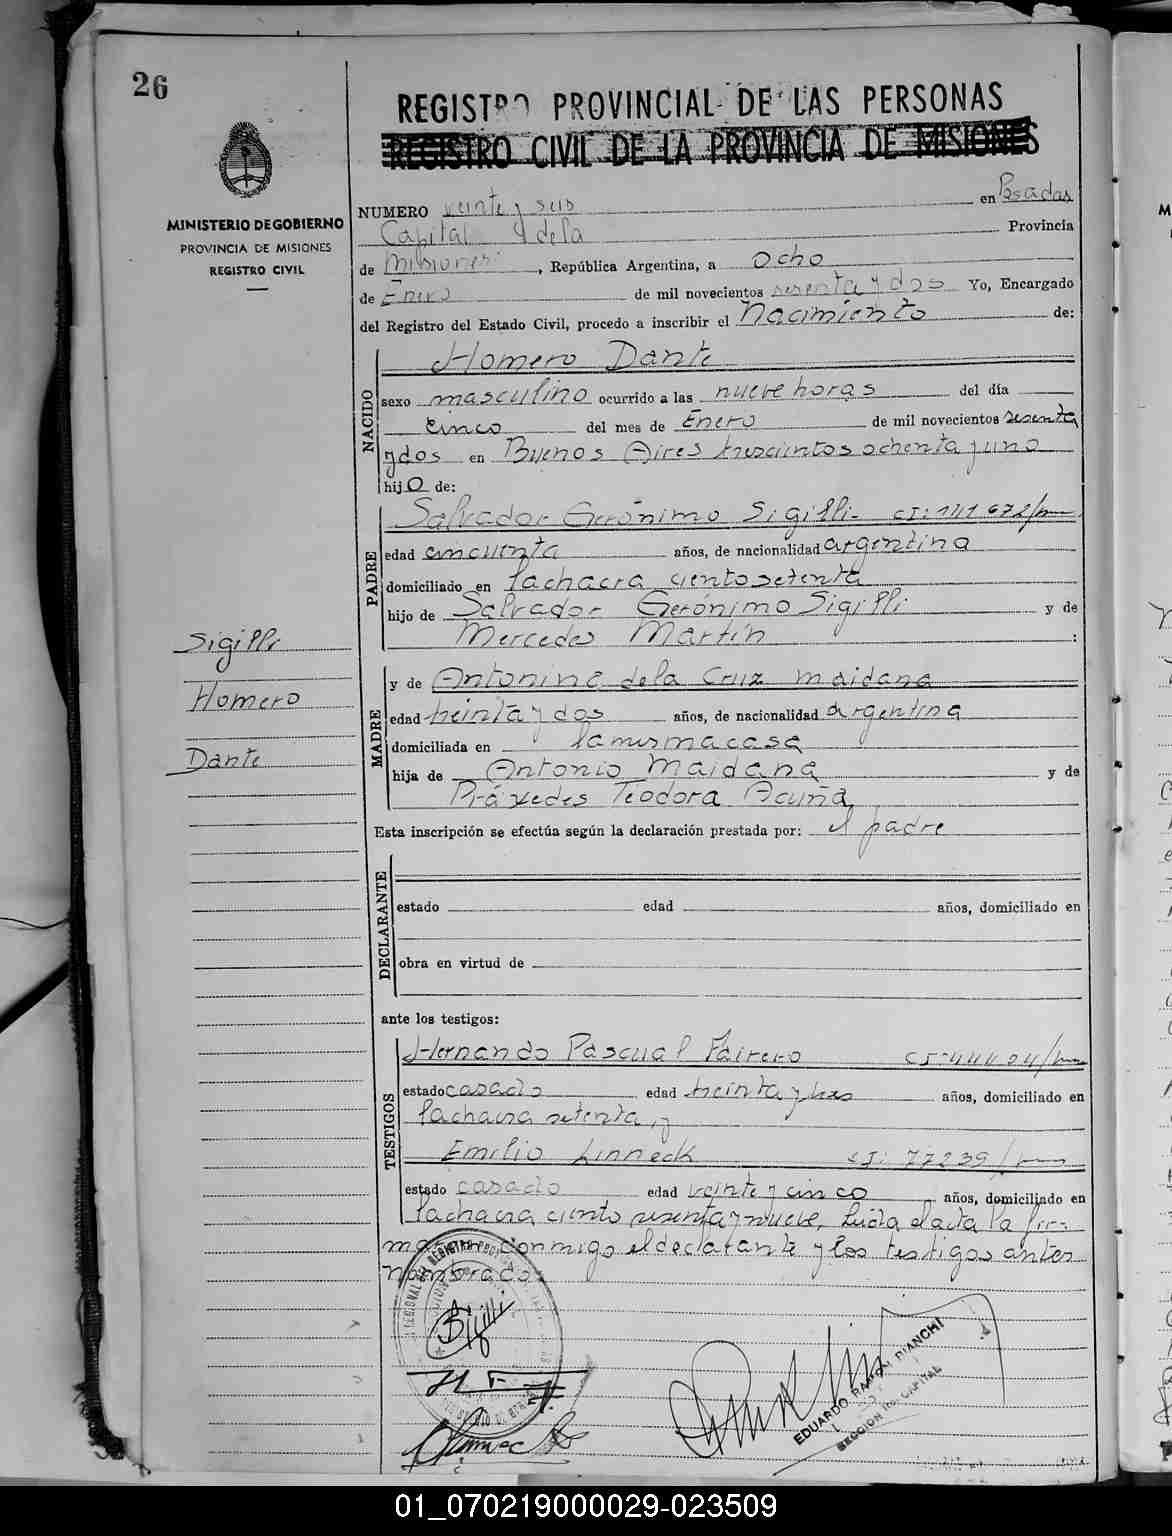 26
REGISTRO PROVINCIAL DE LAS PERSONAS
REGISTRO CIVIL DE LA PROVINCIA DE MISIONES
MINISTERIO DE GOBIERNO
PROVINCIA DE MISIONES
REGISTRO CIVIL
NUMERO veinte y seis en Posadas
Capital de la Provincia
de Misiones, República Argentina, a ocho
de Enero de mil novecientos sesenta y dos Yo, Encargado
del Registro del Estado Civil, procedo a inscribir el Nacimiento de:
NACIDO
Homero Dante
sexo masculino ocurrido a las nueve horas del día
cinco del mes de Enero de mil novecientos sesenta
y dos en Buenos Aires trescientos ochenta y uno
hijo de:
PADRE
Salvador Gerónimo Sigilli- CI: 141.672/
edad cincuenta años, de nacionalidad argentina
domiciliado en la chacra ciento setenta
hijo de Salvador Gerónimo Sigilli y de
Mercedes Martín :
Sigilli
Homero
Dante
MADRE
y de Antonina de la Cruz Maidana
edad treinta y dos años, de nacionalidad argentina
domiciliada en la misma casa
hija de Antonio Maidana y de
Práxedes Teodora Acuña
Esta inscripción se efectúa según la declaración prestada por: el padre
DECLARANTE
estado edad años, domiciliado en
obra en virtud de
ante los testigos:
TESTIGOS
Hernando Pascual CI:
estado casado edad treinta y tres años, domiciliado en
la chacra setenta, y
Emilio Linneck CI: 77239/
estado casado edad veinte y cinco años, domiciliado en
la chacra ciento sesenta y nueve. Leída el acta la fir-
man conmigo el declarante y los testigos antes
nombrados.
Sigilli
EDUARDO RAMON BIANCHI
CAPITAL
01_070219000029-023509